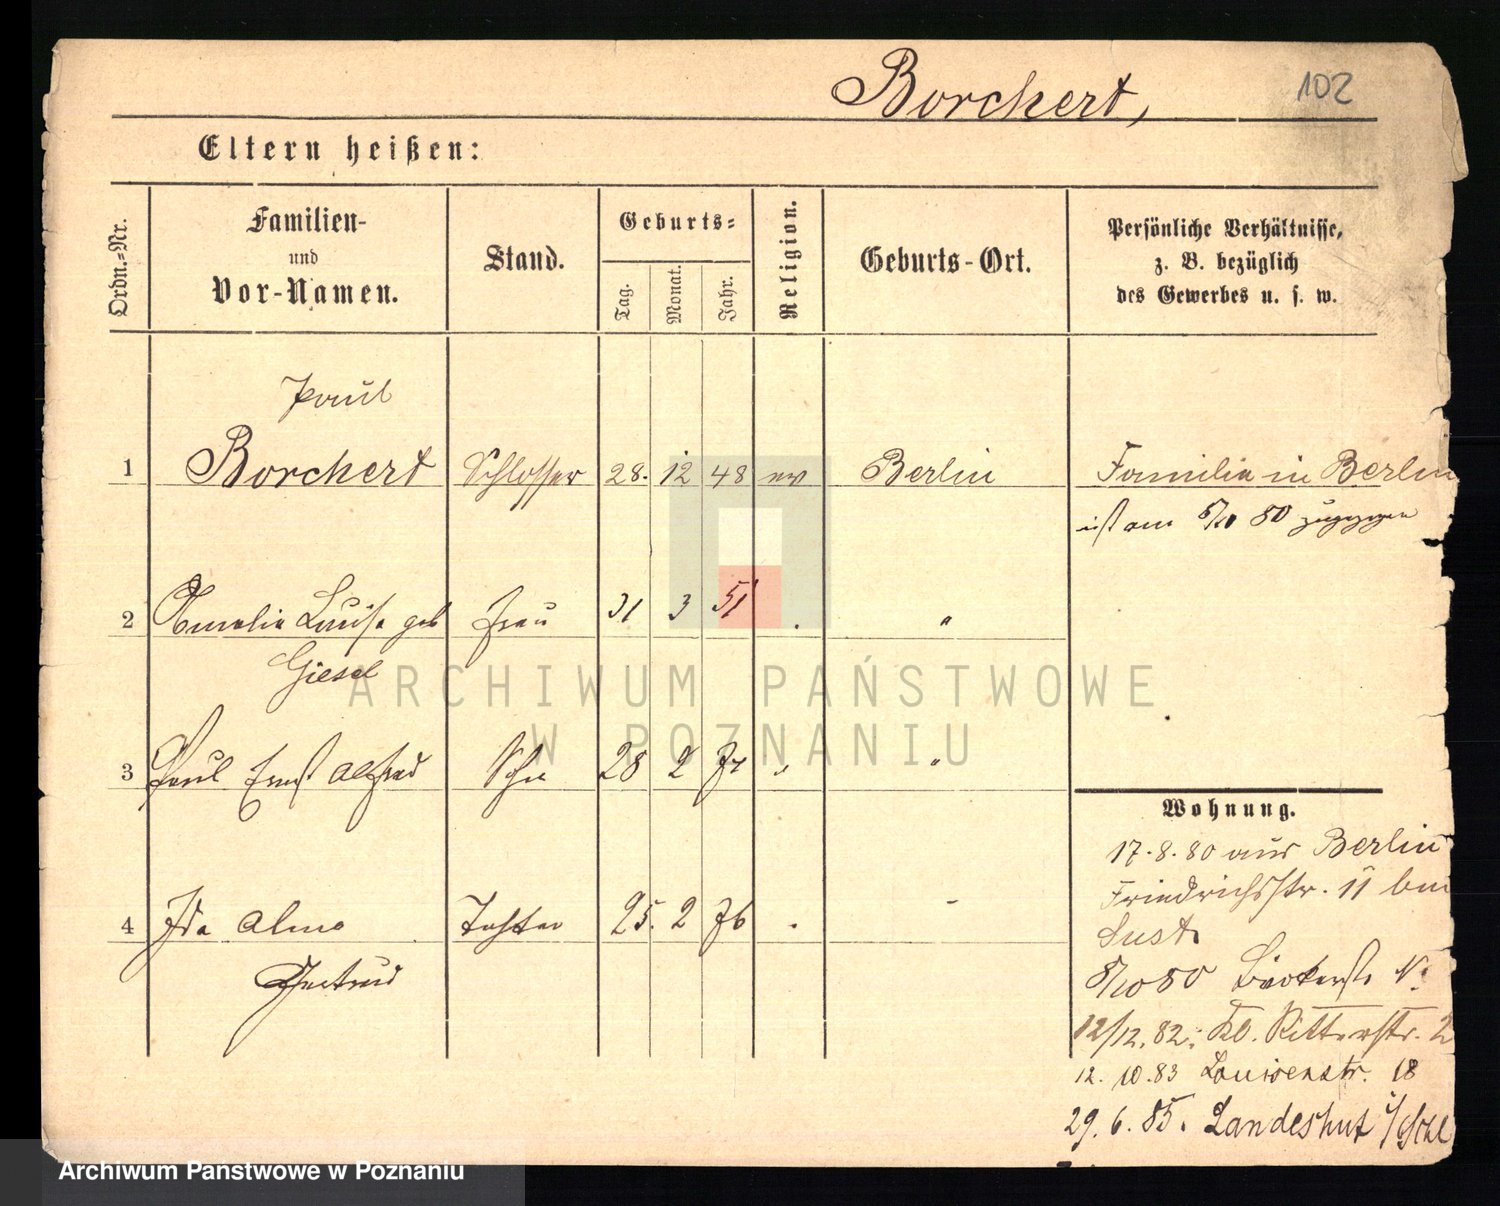 Borchert,
102
Eltern heißen:
Ordn.=Nr.
Familien-
und
Vor-Namen.
Stand.
Geburts=
Tag.
Monat.
Jahr.
Religion.
Geburts-Ort.
Persönliche Verhältnisse,
z. B. bezüglich
des Gewerbes u. s. w.
Paul
1 Borchert Schlosser 28. 12 48 ev Berlin Familie in Berlin
ist am 80 zugezogen
2 Amalie Luise geb Frau 31 3 51 . "
Giesel
3 Paul Ernst Alfred Sohn 28 2 " "
4 Ida Alma Tochter 25. 2 76 . -
Gertrud
Wohnung.
17.8.80 aus Berlin
Friedrichsstr. 11 bei
Lust
8/10 80 Bäckerstr N.
12/12.82: Kl. Ritterstr. 2
12. 10. 83 Louisenstr. 18
29. 6. 85. Landeshut i/Schl
ARCHIWUM PAŃSTWOWE
W POZNANIU
Archiwum Państwowe w Poznaniu